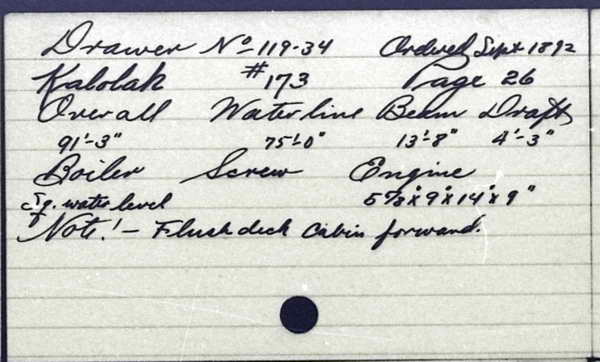 Drawer No 119-34 Ordered Sept 1892
Kalolah #173 Page 26
Overall Waterline Beam Draft
91'-3" 75'-0" 13'-8" 4'-3"
Boiler Screw Engine
Sq. water level 5⅞" x 9" x 14" x 9"
Note! - Flush deck Cabin forward.